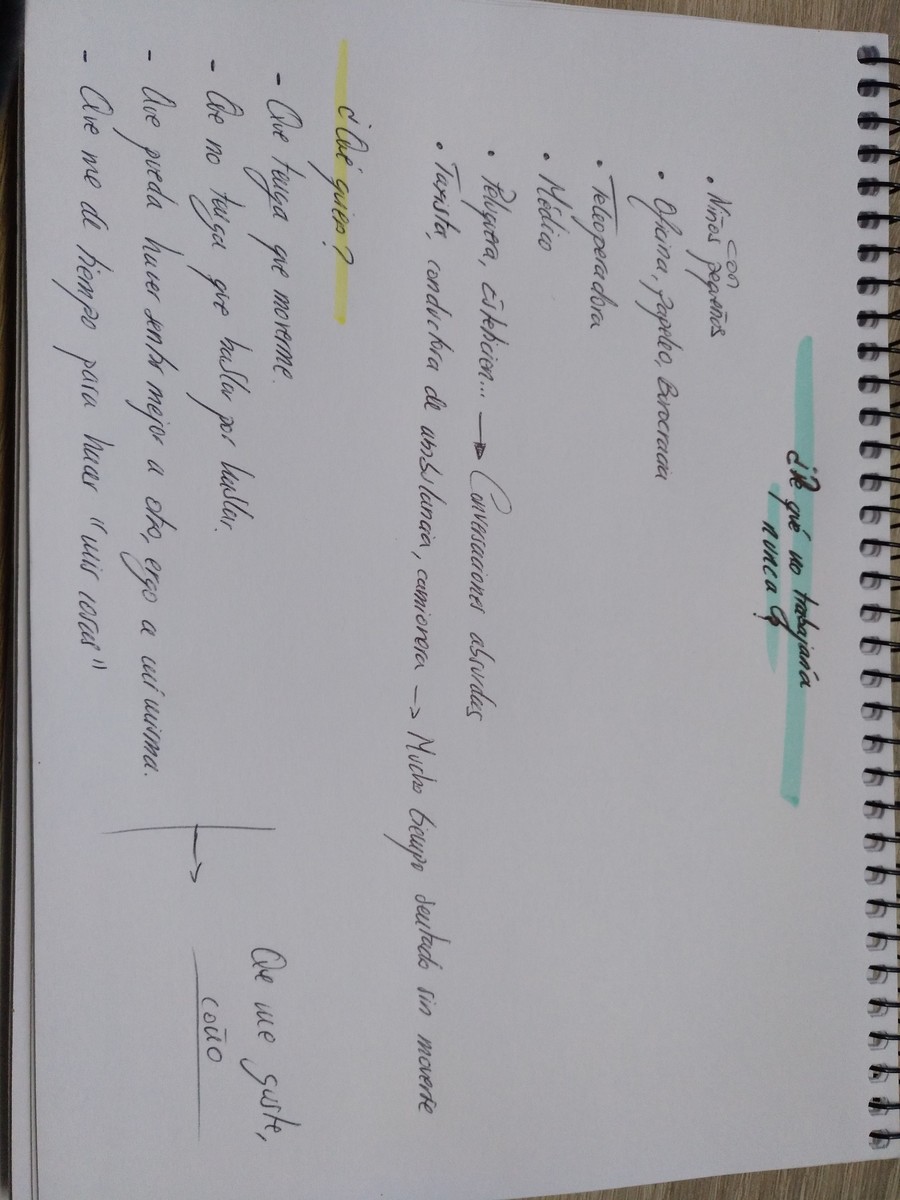 ¿De qué no trabajaría
nunca?
• Niños con pequeños
• Oficina, papeleo, Burocracia
• Teleoperadora
• Médico
• Peluquera, esteticien... → Conversaciones absurdas
• Taxista, conductora de ambulancia, camionera → Mucho tiempo sentado sin moverte
¿Qué quiero?
- Que tenga que moverme.
- Que no tenga que hablar por hablar.
- Que pueda hacer sentir mejor a otro, ergo a mí misma.
- Que me de tiempo para hacer "mis cosas"
→ Que me guste,
coño